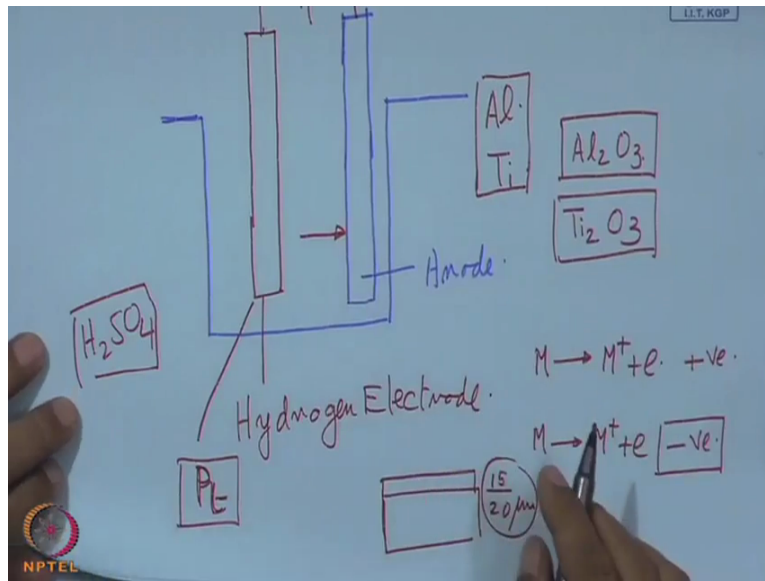 I.I.T. KGP
Al.
Ti
Al2O3.
Ti2O3
Anode.
H2SO4
M → M+ + e. +ve.
Hydrogen Electrode.
M → M+ + e -ve.
Pt
15
20 μm
NPTEL